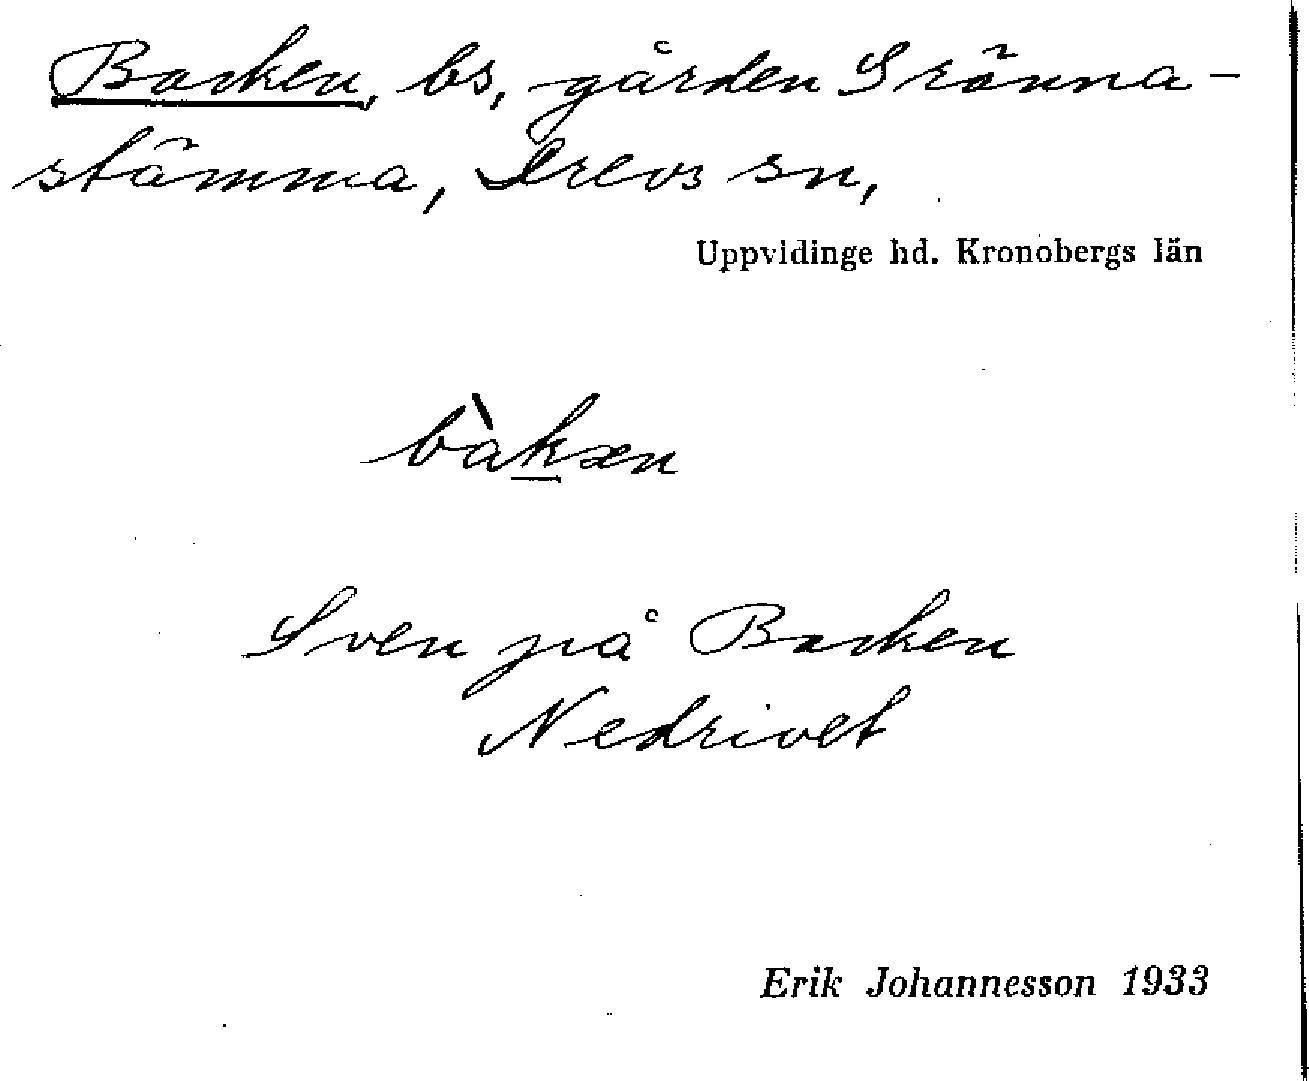 Backen, bs, gården Sränna-
stämma, Drevs sn,
Uppvidinge hd. Kronobergs län
bàkæn
Sven på Backen
Nedrivet
Erik Johannesson 1933